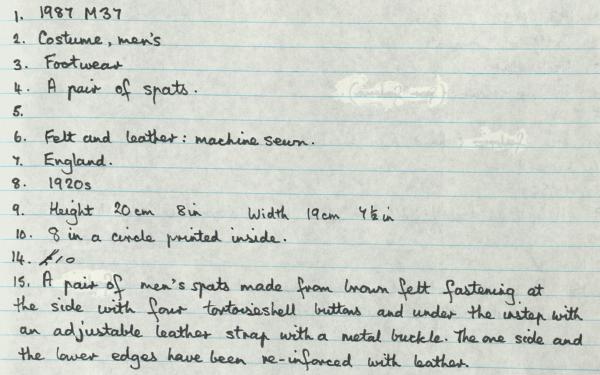 1. 1987 M37
2. Costume, men's
3. Footwear
4. A pair of spats.
5.
6. Felt and leather: machine sewn.
7. England.
8. 1920s
9. Height 20cm 8in Width 19cm 7½in
10. 8 in a circle printed inside.
14. £10
15. A pair of men's spats made from brown felt fastening at
the side with four tortoiseshell buttons and under the instep with
an adjustable leather strap with a metal buckle. The one side and
the lower edges have been re-inforced with leather.